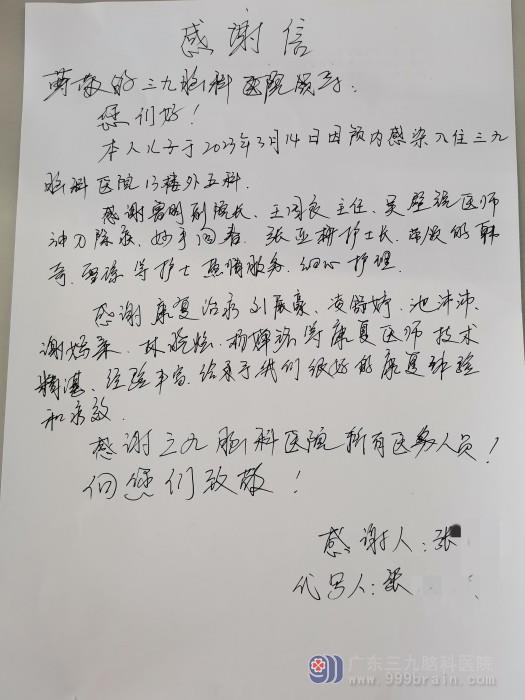 感谢信
尊敬的三九脑科医院领导：
您们好！
本人儿子于2023年3月14日因颅内感染入住三九
脑科医院13楼外五科.
感谢曹明副院长、王国良主任、吴 医师
神刀除病、妙手回春、张亚 护士长、带领的韩
奇、雪 等护士热情服务、细心护理.
感谢康复治疗刘展豪、凌舒婷、池沛沛、
谢 、林晓 、杨 等康复医师技术
精湛、经验丰富、给予了我们很好的康复体验
和疗效.
感谢三九脑科医院所有医务人员！
向您们致敬！
感谢人：张
代写人：张
广东三九脑科医院
www.999brain.com